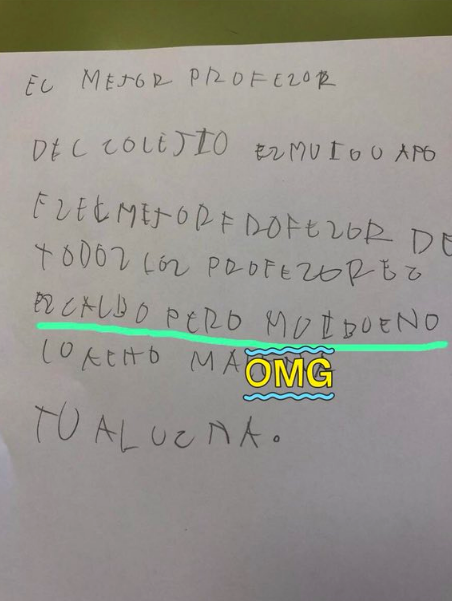 EL MEJOR PROFEZOR
DEL COLEJIO EZ MUI GUAPO
EZ EL MEJOR PROFEZOR DE
TODOZ LOZ PROFEZOREZ
EZ CALBO PERO MUI BUENO
OMG
TU ALUZNA.